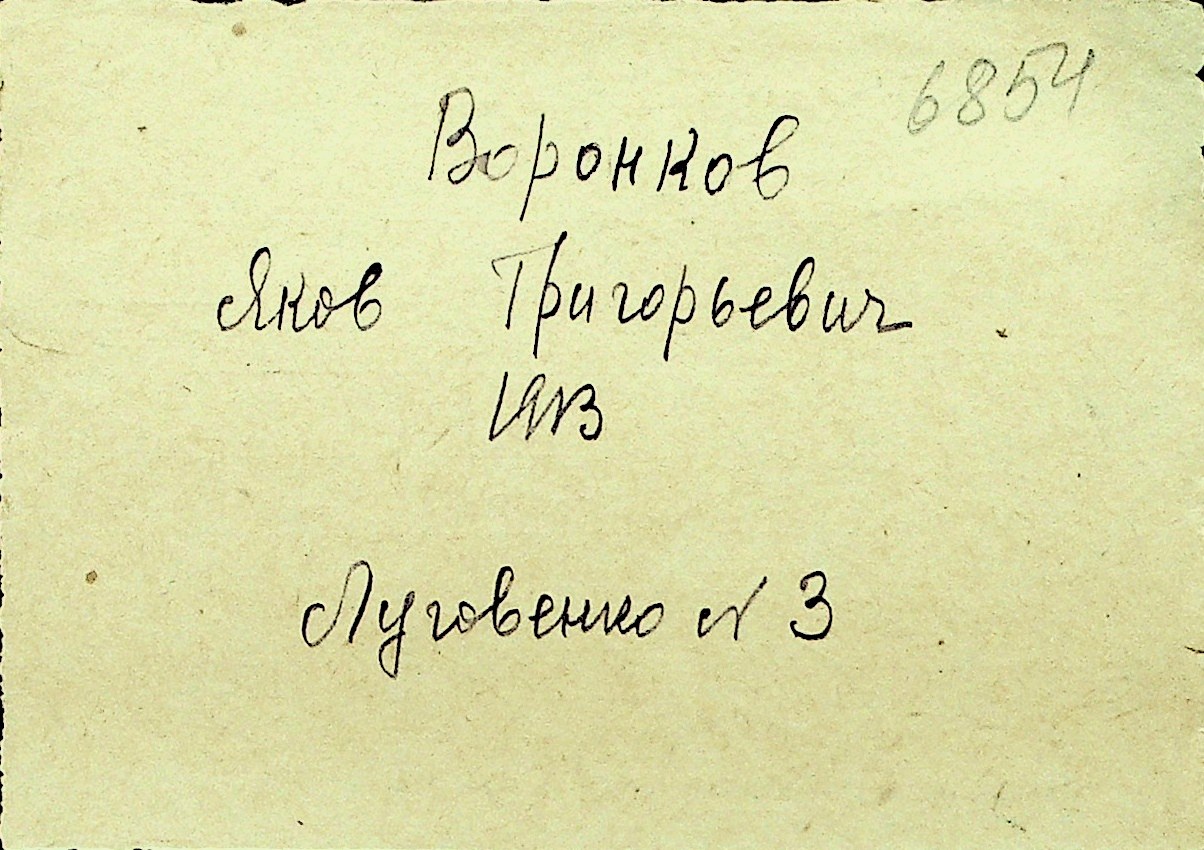 6854
Воронков
Яков Григорьевич
Луговенко № 3